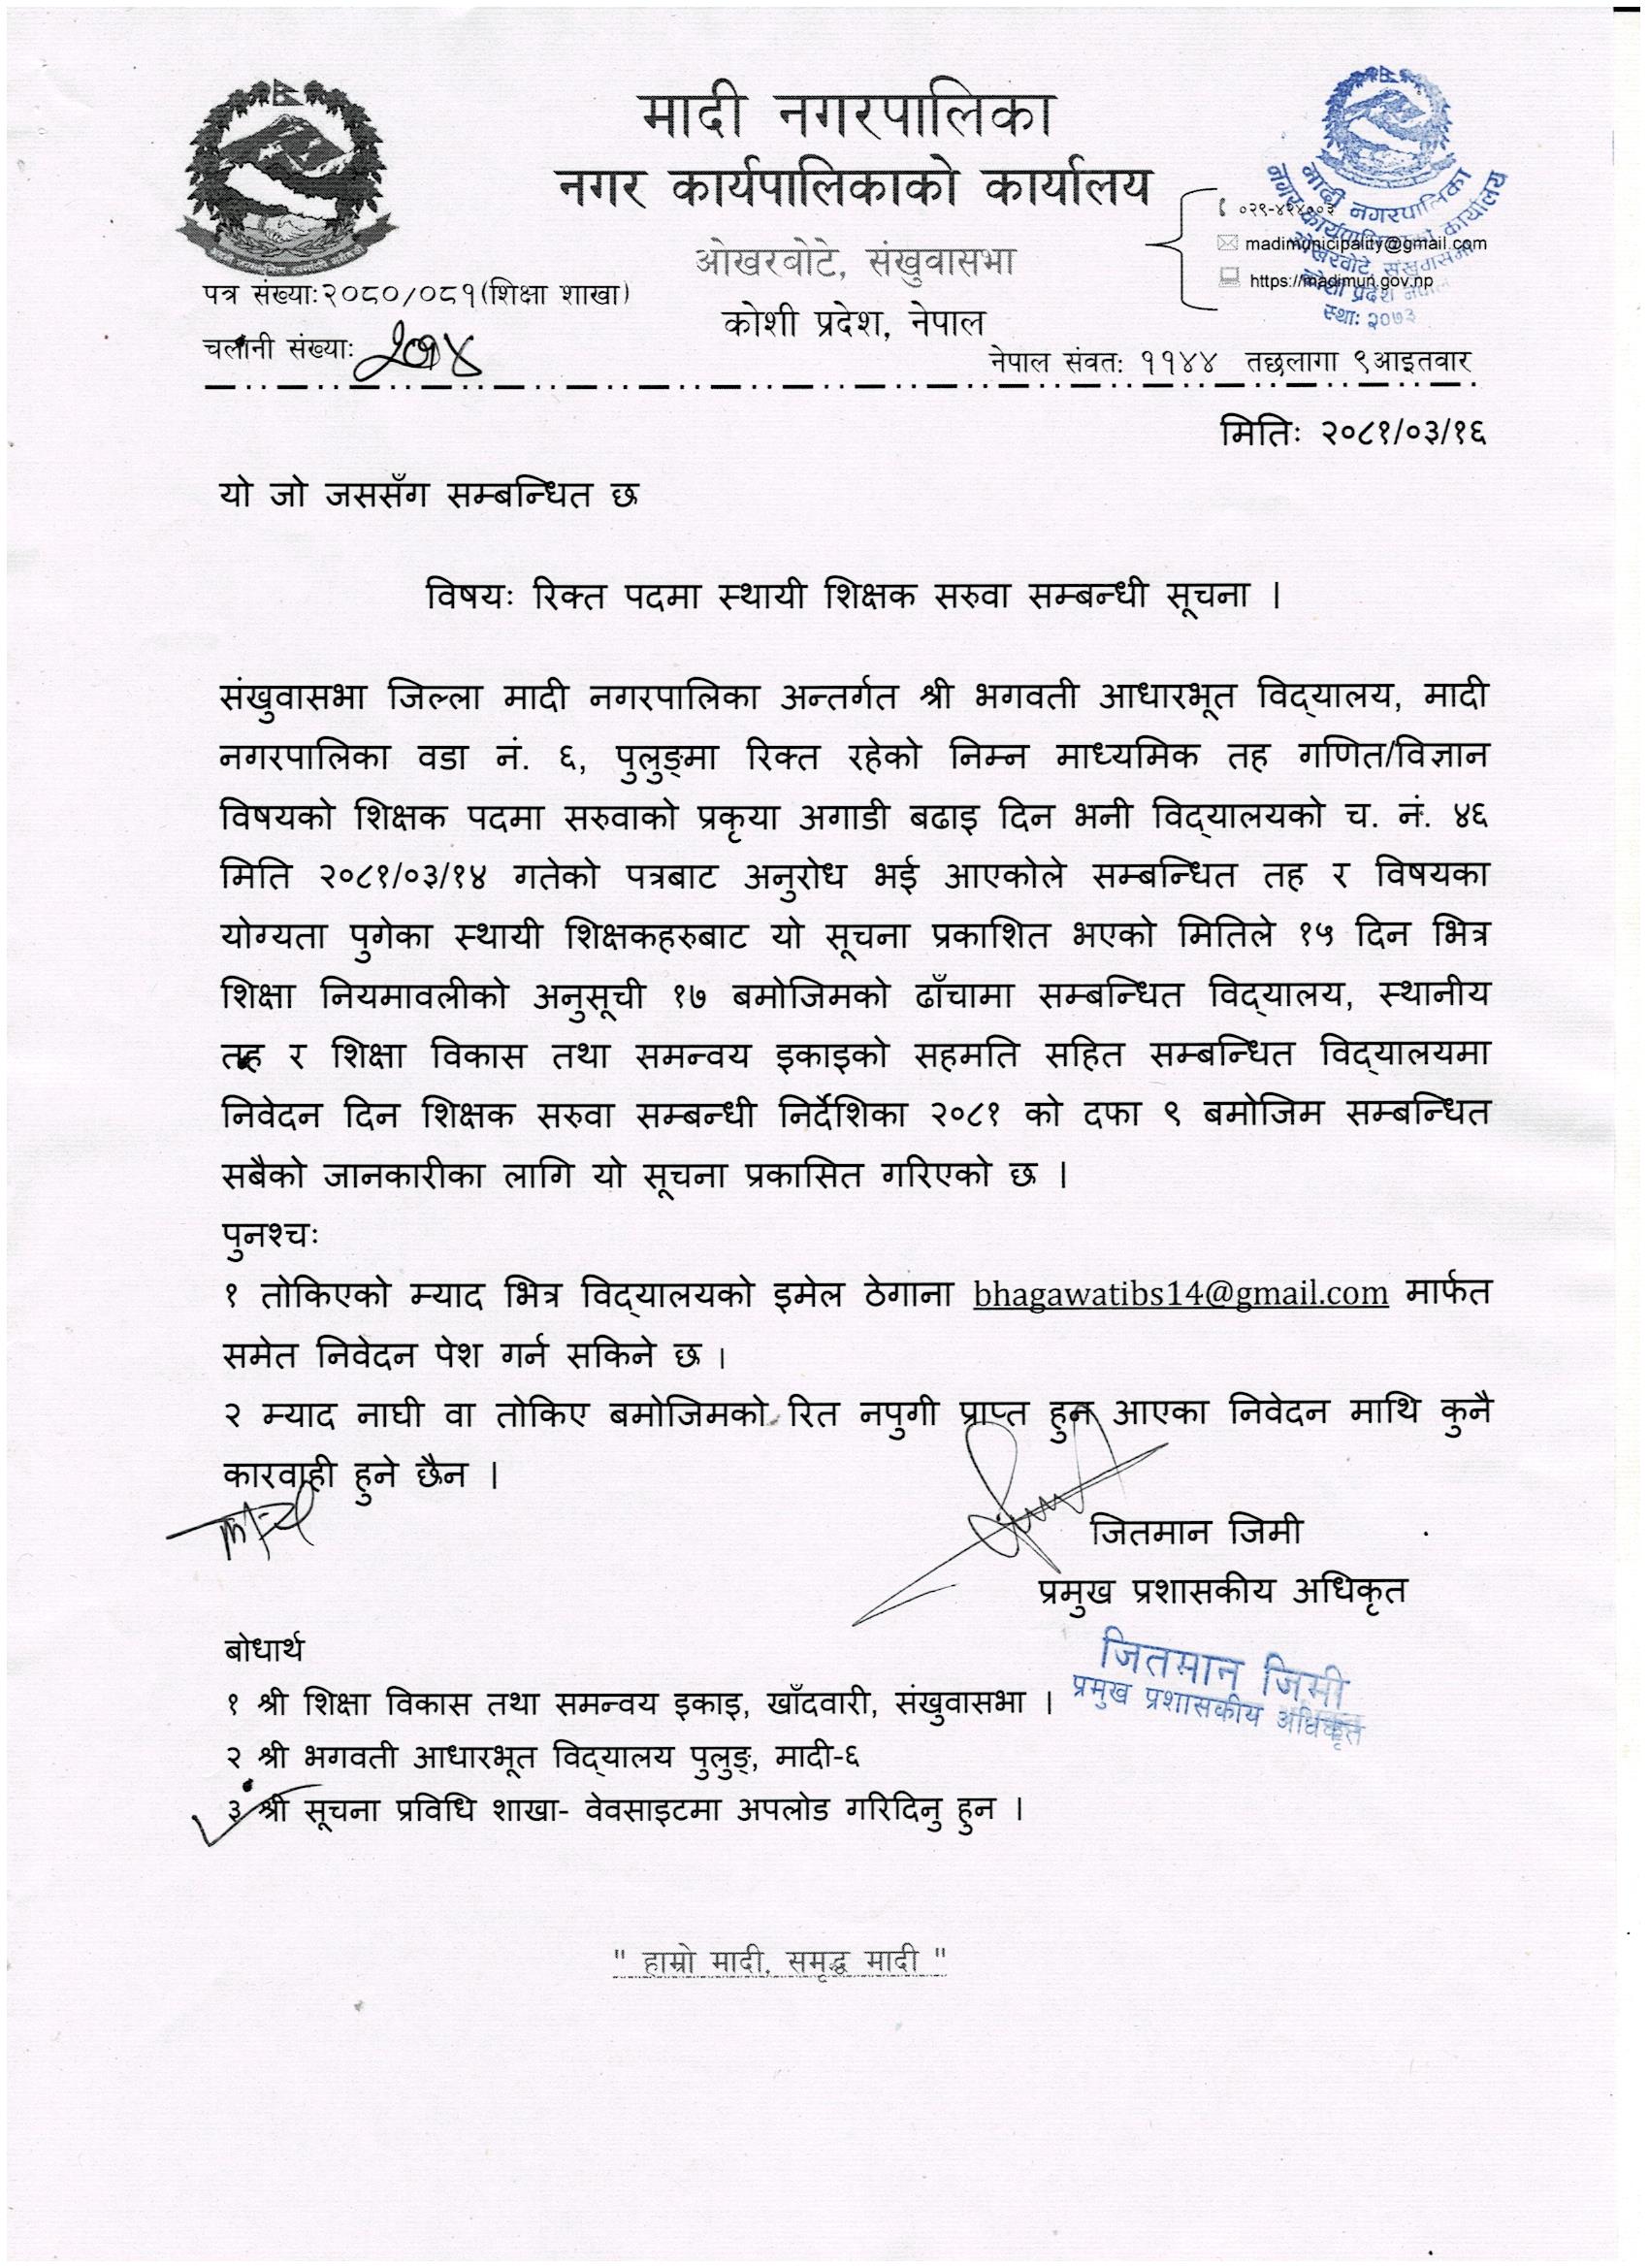 मादी नगरपालिका
नगर कार्यपालिकाको कार्यालय
ओखरबोटे, संखुवासभा
कोशी प्रदेश, नेपाल
madimunicipality@gmail.com
https://madimun.gov.np
मादी नगरपालिका
नगर कार्यपालिकाको कार्यालय
ओखरबोटे, संखुवासभा
कोशी प्रदेश नेपाल
स्था: २०७३
पत्र संख्याः२०८०/०८१(शिक्षा शाखा)
चलानी संख्याः
नेपाल संवतः ११४४ तछलागा ९आइतवार
मितिः २०८१/०३/१६
यो जो जससँग सम्बन्धित छ
विषयः रिक्त पदमा स्थायी शिक्षक सरुवा सम्बन्धी सूचना ।
संखुवासभा जिल्ला मादी नगरपालिका अन्तर्गत श्री भगवती आधारभूत विद्यालय, मादी
नगरपालिका वडा नं. ६, पुलुङ्मा रिक्त रहेको निम्न माध्यमिक तह गणित/विज्ञान
विषयको शिक्षक पदमा सरुवाको प्रकृया अगाडी बढाइ दिन भनी विद्यालयको च. नं. ४६
मिति २०८१/०३/१४ गतेको पत्रबाट अनुरोध भई आएकोले सम्बन्धित तह र विषयका
योग्यता पुगेका स्थायी शिक्षकहरुबाट यो सूचना प्रकाशित भएको मितिले १५ दिन भित्र
शिक्षा नियमावलीको अनुसूची १७ बमोजिमको ढाँचामा सम्बन्धित विद्यालय, स्थानीय
तह र शिक्षा विकास तथा समन्वय इकाइको सहमति सहित सम्बन्धित विद्यालयमा
निवेदन दिन शिक्षक सरुवा सम्बन्धी निर्देशिका २०८१ को दफा ९ बमोजिम सम्बन्धित
सबैको जानकारीका लागि यो सूचना प्रकासित गरिएको छ ।
पुनश्चः
१ तोकिएको म्याद भित्र विद्यालयको इमेल ठेगाना bhagawatibs14@gmail.com मार्फत
समेत निवेदन पेश गर्न सकिने छ ।
२ म्याद नाघी वा तोकिए बमोजिमको रित नपुगी प्राप्त हुन आएका निवेदन माथि कुनै
कारवाही हुने छैन ।
जितमान जिमी
प्रमुख प्रशासकीय अधिकृत
जितमान जिमी
प्रमुख प्रशासकीय अधिकृत
बोधार्थ
१ श्री शिक्षा विकास तथा समन्वय इकाइ, खाँदवारी, संखुवासभा ।
२ श्री भगवती आधारभूत विद्यालय पुलुङ्, मादी-६
३ श्री सूचना प्रविधि शाखा- वेवसाइटमा अपलोड गरिदिनु हुन ।
" हाम्रो मादी, समृद्ध मादी "